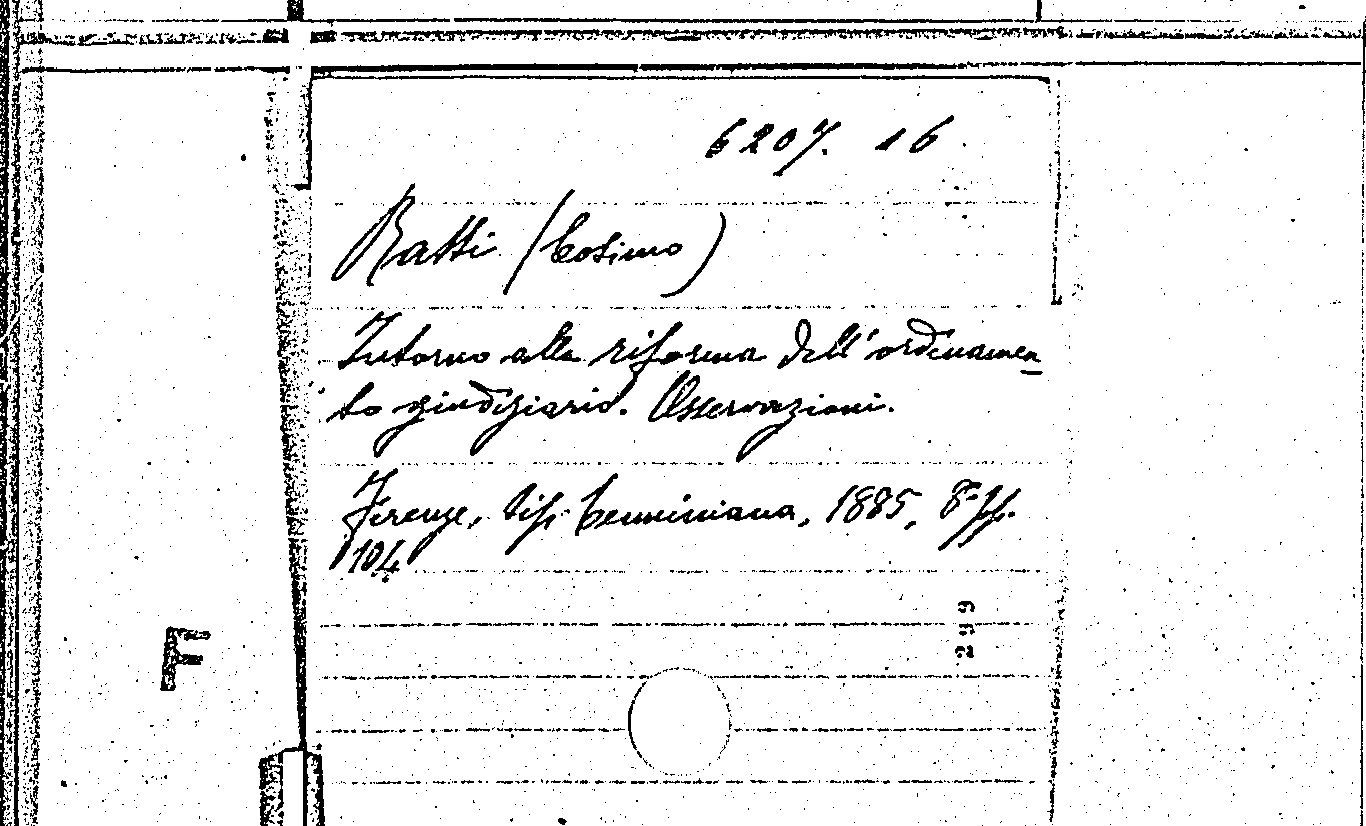 6207. 16
Ratti (Cosimo)
Intorno alla riforma dell'ordinamen
to giudiziario. Osservazioni.
Firenze, tip. Cenniniana, 1885, 8º pp.
104
299
F